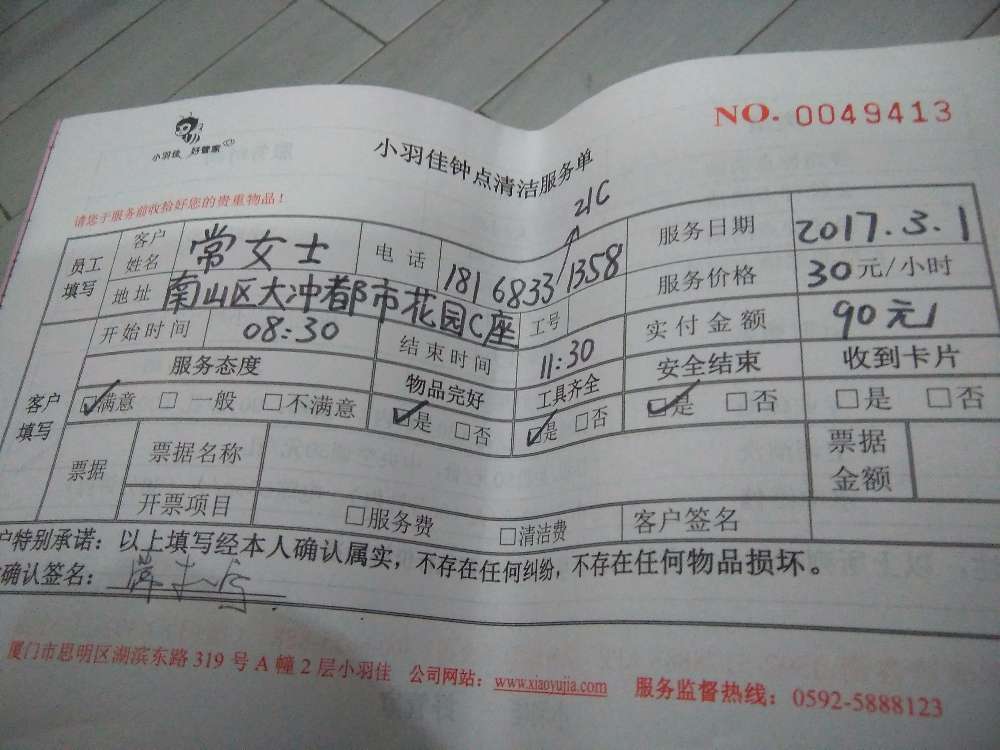 NO. 0049413
小羽佳 好管家
小羽佳钟点清洁服务单
请您于服务前收拾好您的贵重物品！
21C
员工填写 客户姓名 常女士 电话 181 6833 1358 服务日期 2017.3.1
地址 南山区大冲都市花园C座 工号 服务价格 30元/小时
开始时间 08:30 结束时间 11:30 实付金额 90元
客户填写 服务态度 物品完好 工具齐全 安全结束 收到卡片
☑满意 □一般 □不满意 ☑是 □否 ☑是 □否 ☑是 □否 □是 □否
票据 票据名称 票据金额
开票项目 □服务费 □清洁费 客户签名
户特别承诺：以上填写经本人确认属实，不存在任何纠纷，不存在任何物品损坏。
确认签名：
厦门市思明区湖滨东路 319 号 A 幢 2 层小羽佳 公司网站：www.xiaoyujia.com 服务监督热线：0592-5888123